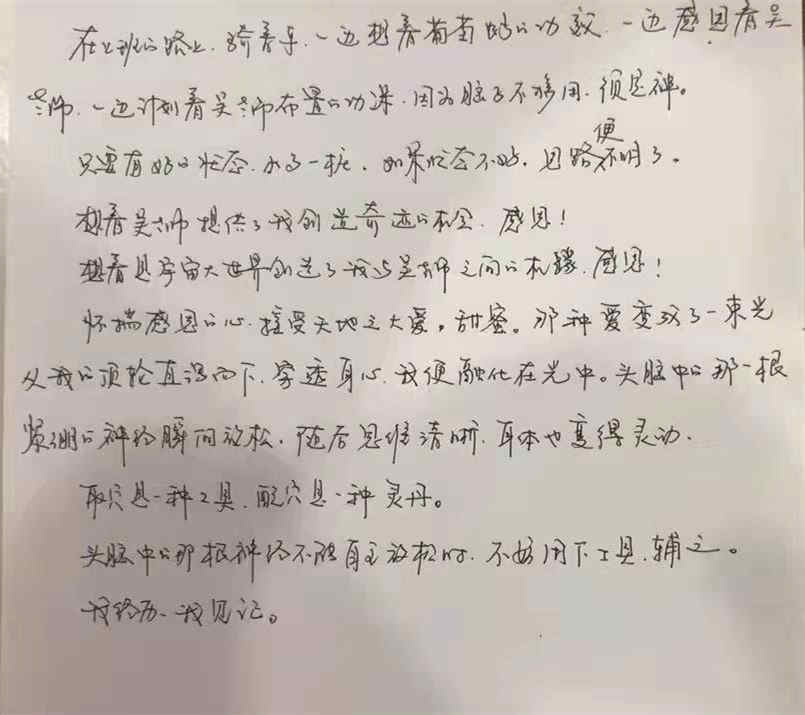 在上班的路上,骑着车,一边想着葡萄奶的功效,一边感恩着吴
老师,一边计划着吴老师布置的功课,因为脑子不够用,须是神。
只要有好的状态,水了一桩,如果状态不好,思路便不明了。
想着吴老师提供了我创造奇迹的机会,感恩!
想着是宇宙大世界创造了我与吴老师之间的机缘,感恩!
怀揣感恩的心,接受天地之大爱,甜蜜。那种爱变成了一束光
从我的顶轮直泻而下,穿透身心,我便融化在光中。头脑中的那一根
紧绷的神经瞬间放松,随后思维清晰,身体也变得灵动.
取穴是一种工具,配穴是一种灵丹。
头脑中的那根神经不能自主放松时,不妨用下工具,辅之。
我经历,我见证。